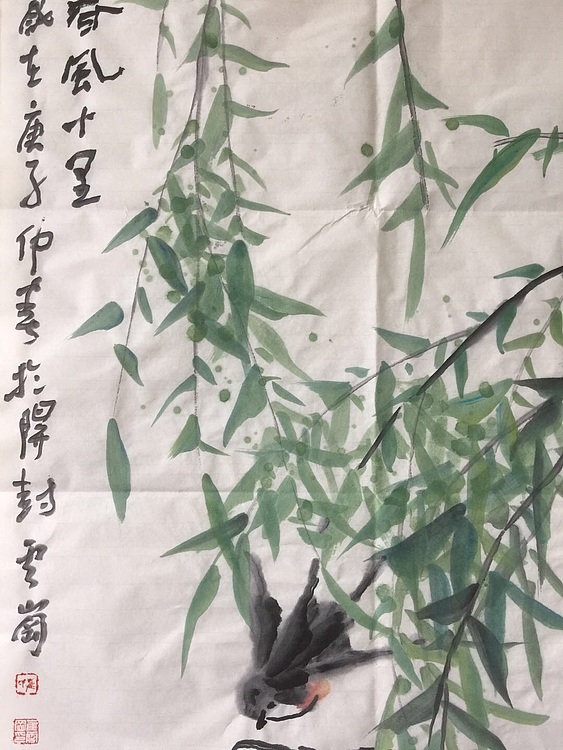 春风十里
歲在庚子仲春於開封雲崗